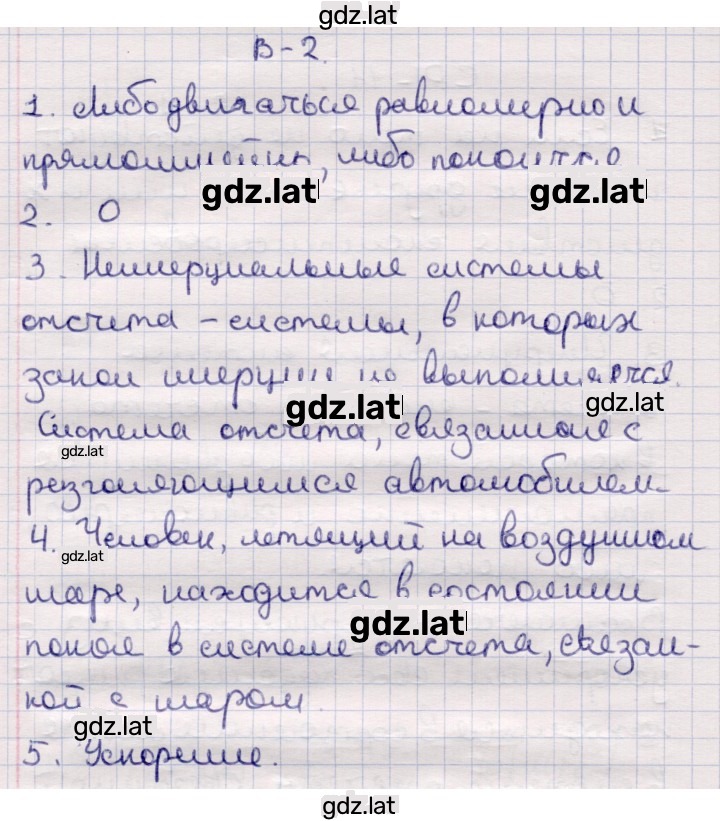 gdz.lat
В-2.
1. Либо двигаться равномерно и
прямолинейно, либо покоится
gdz.lat gdz.lat
2. 0
3. Неинерциальные системы
отсчета – системы, в которых
закон инерции не выполняется.
gdz.lat gdz.lat
Система отсчета, связанное с
gdz.lat
резгоняющимся автомобилем.
4. Человек, летящий на воздушном
gdz.lat
шаре, находится в состоянии
gdz.lat
покоя в системе отсчета, связан-
ной с шаром.
gdz.lat
5. Ускорение.
gdz.lat